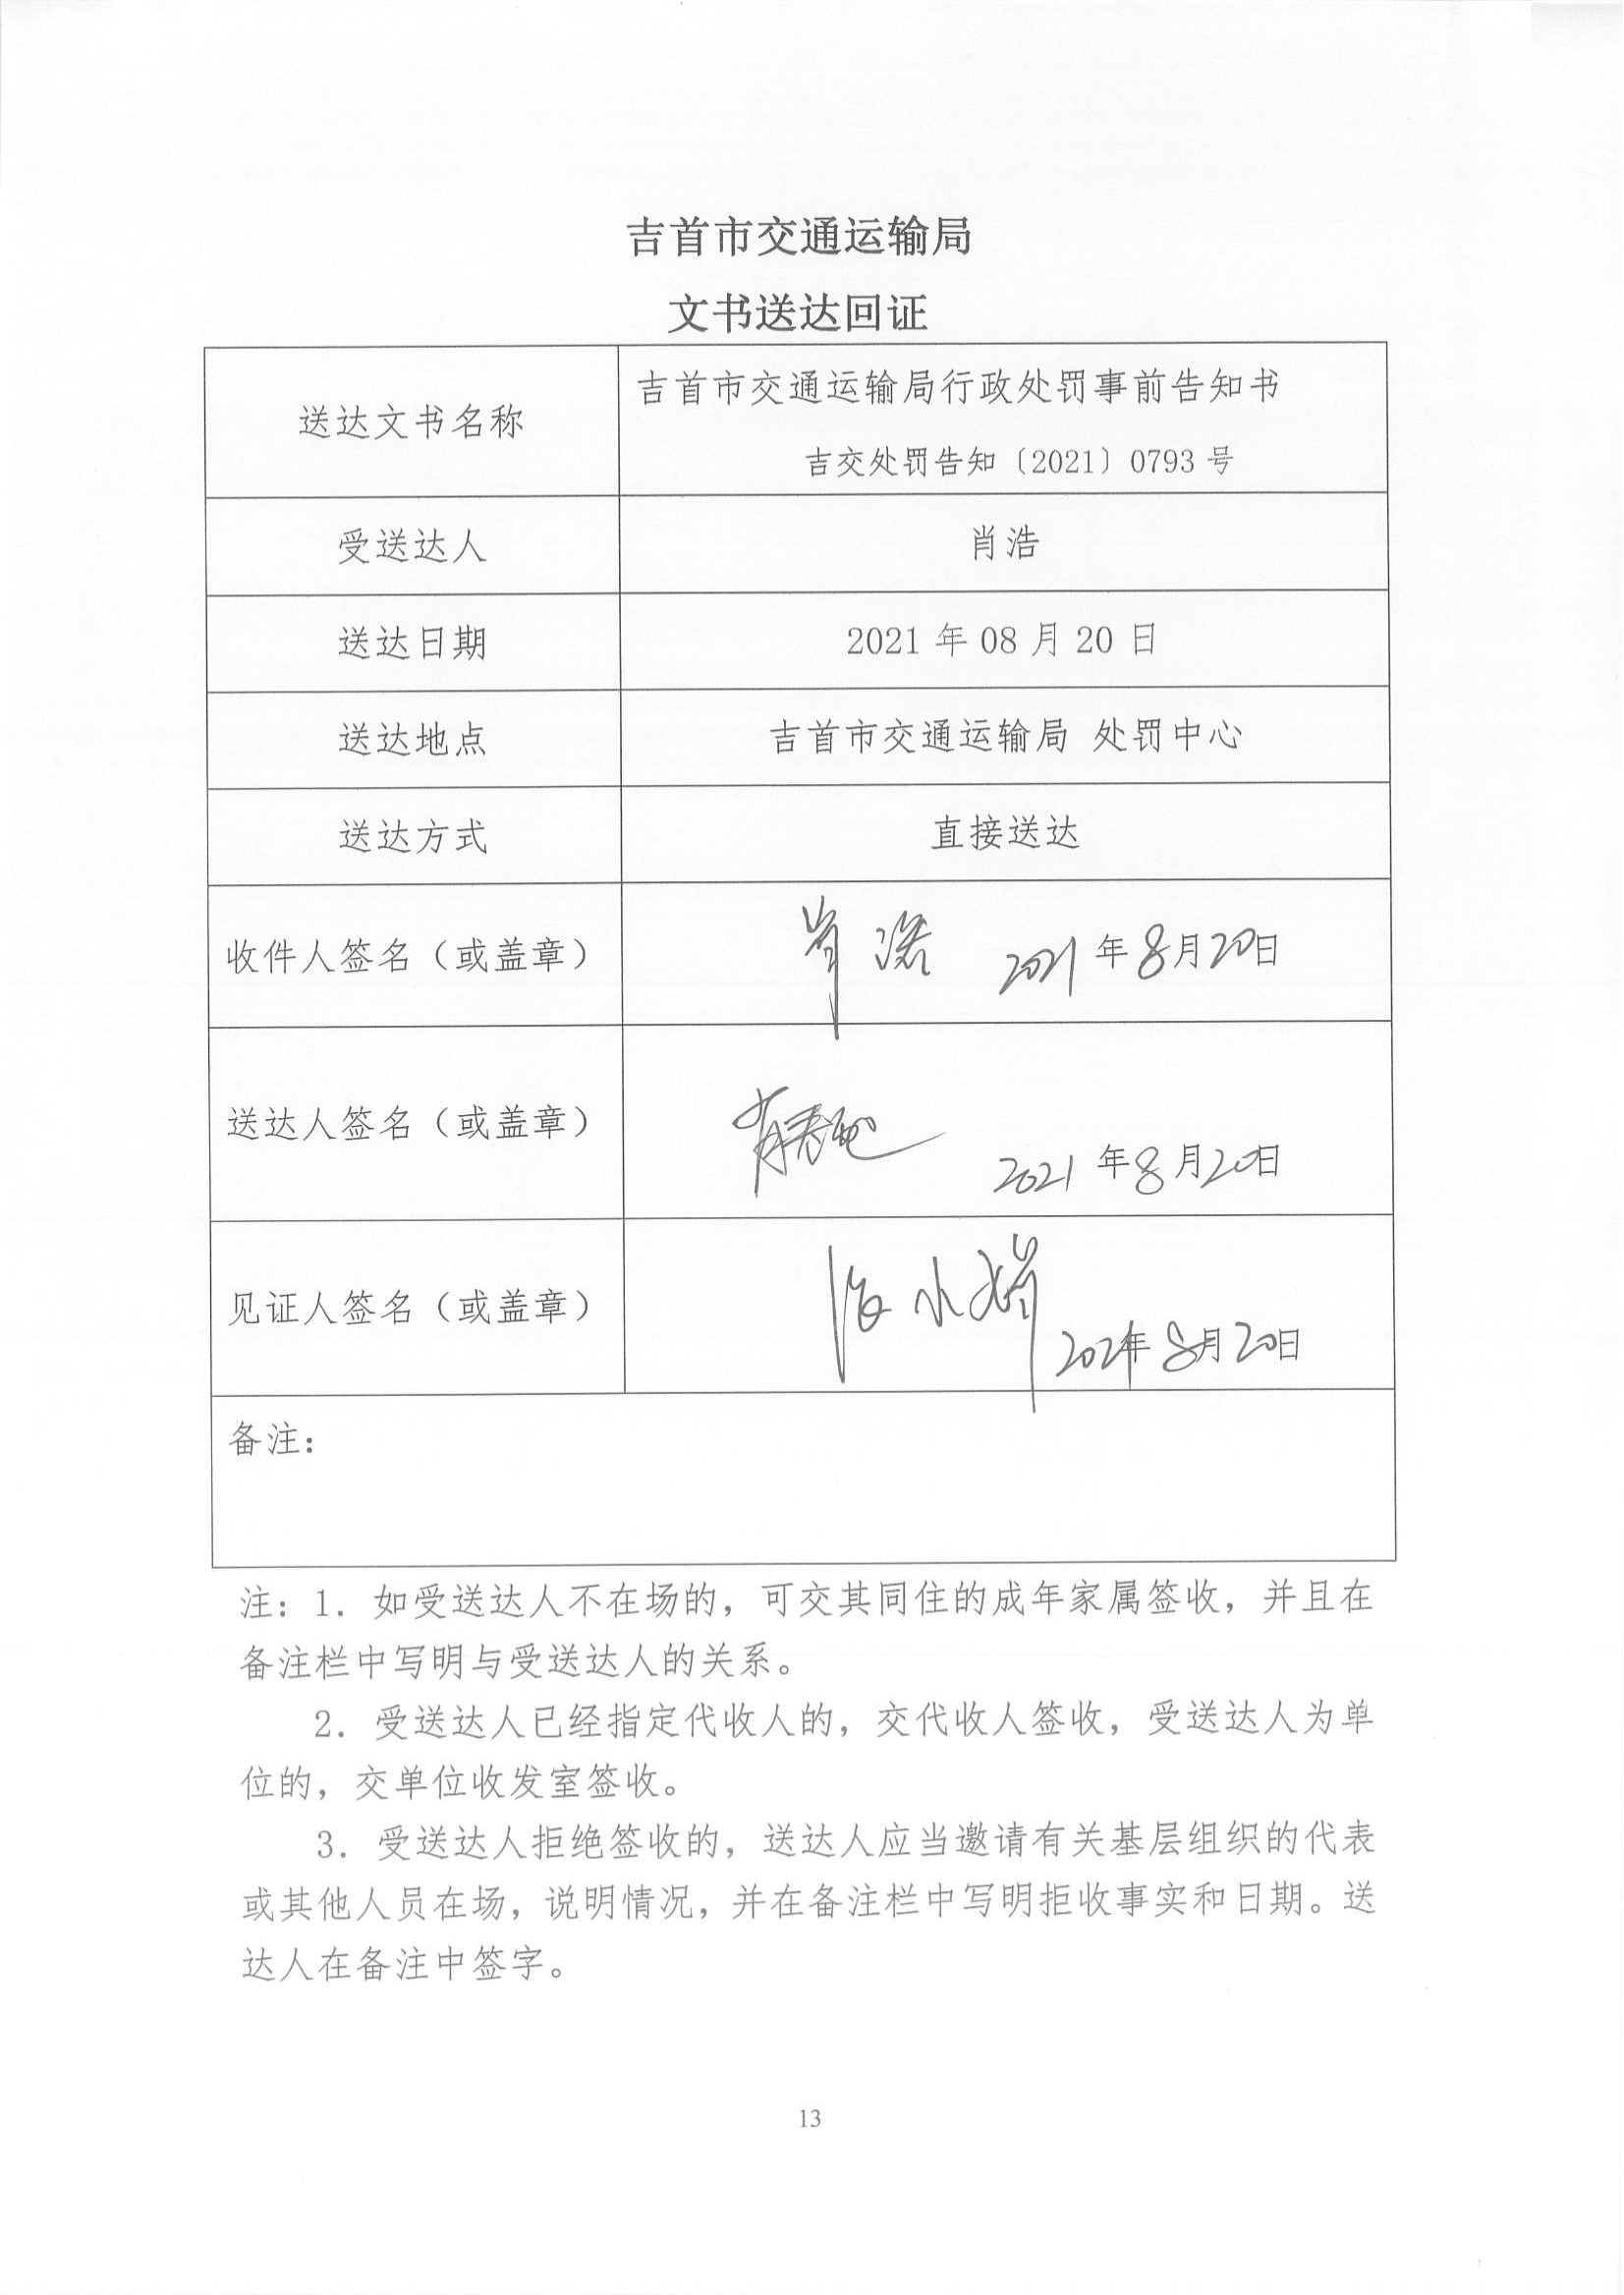 吉首市交通运输局
文书送达回证
送达文书名称
吉首市交通运输局行政处罚事前告知书
吉交处罚告知〔2021〕0793 号
受送达人
肖浩
送达日期
2021 年 08 月 20 日
送达地点
吉首市交通运输局 处罚中心
送达方式
直接送达
收件人签名（或盖章）
肖浩 2021 年 8 月 20 日
送达人签名（或盖章）
2021 年 8 月 20 日
见证人签名（或盖章）
2021 年 8 月 20 日
备注：
注：1．如受送达人不在场的，可交其同住的成年家属签收，并且在
备注栏中写明与受送达人的关系。
2．受送达人已经指定代收人的，交代收人签收，受送达人为单
位的，交单位收发室签收。
3．受送达人拒绝签收的，送达人应当邀请有关基层组织的代表
或其他人员在场，说明情况，并在备注栏中写明拒收事实和日期。送
达人在备注中签字。
13